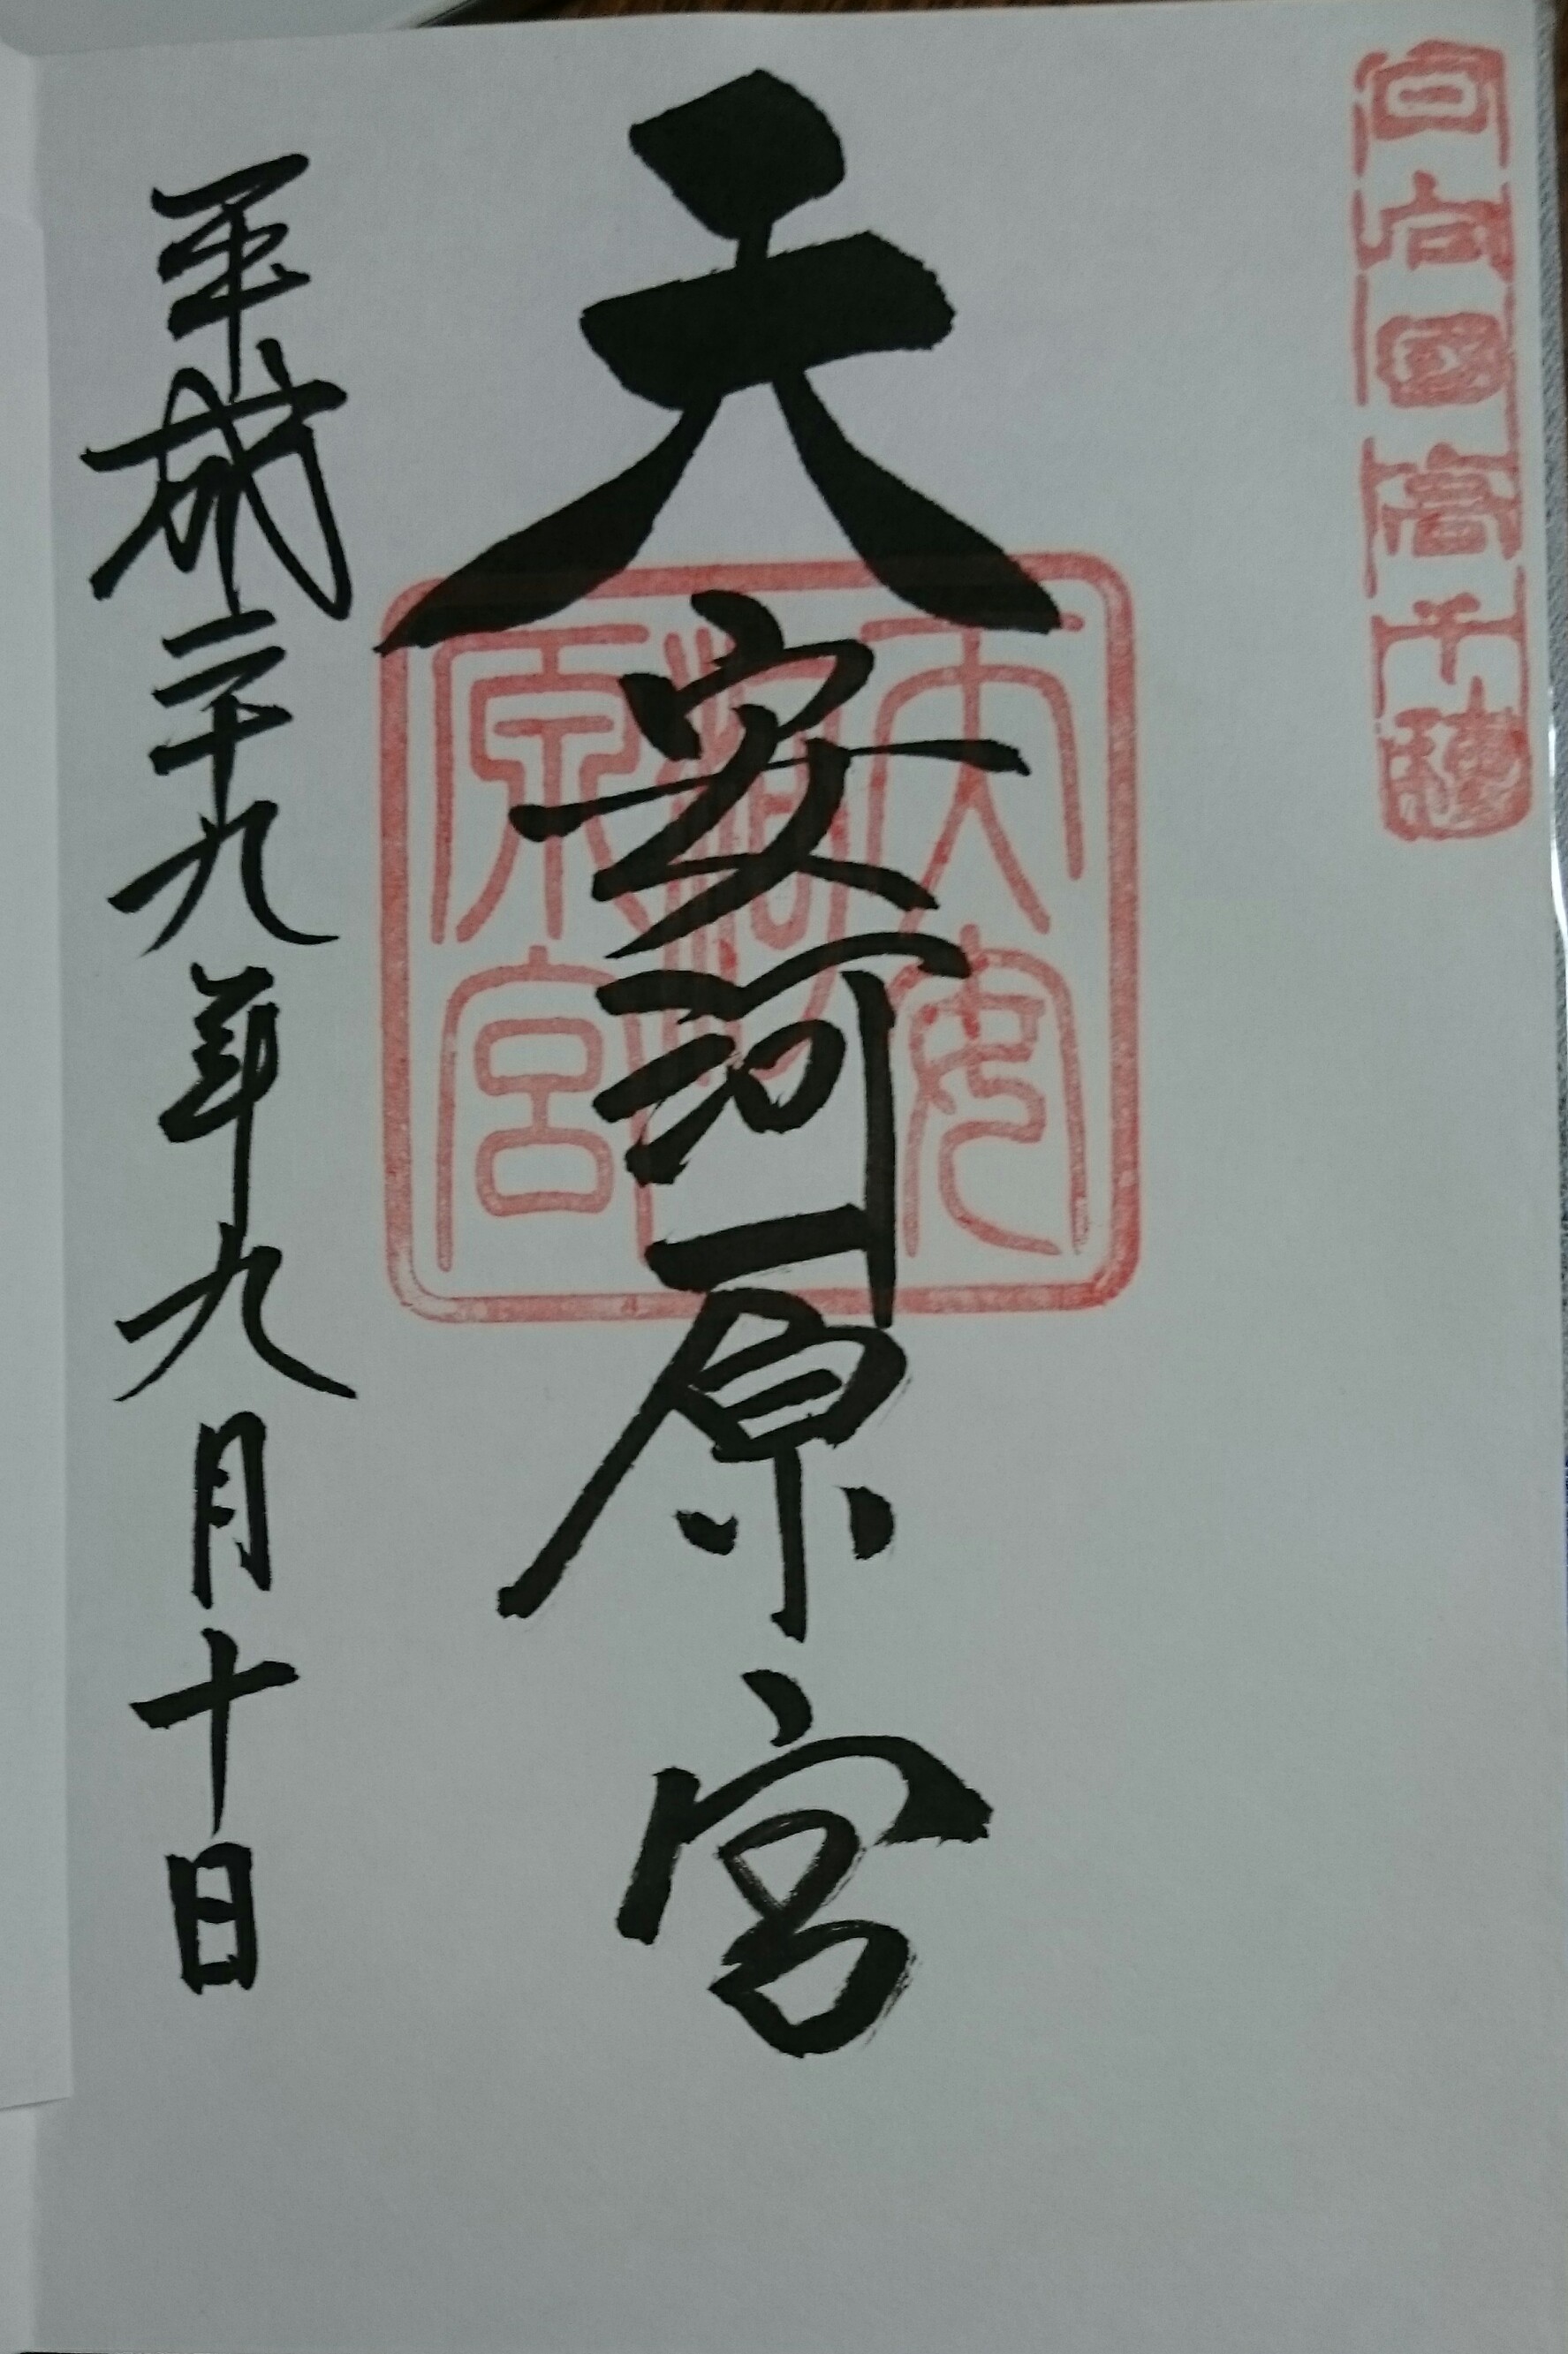 日向國高千穂
天安河原宮
天安
河
原宮
平成二十九年九月十日